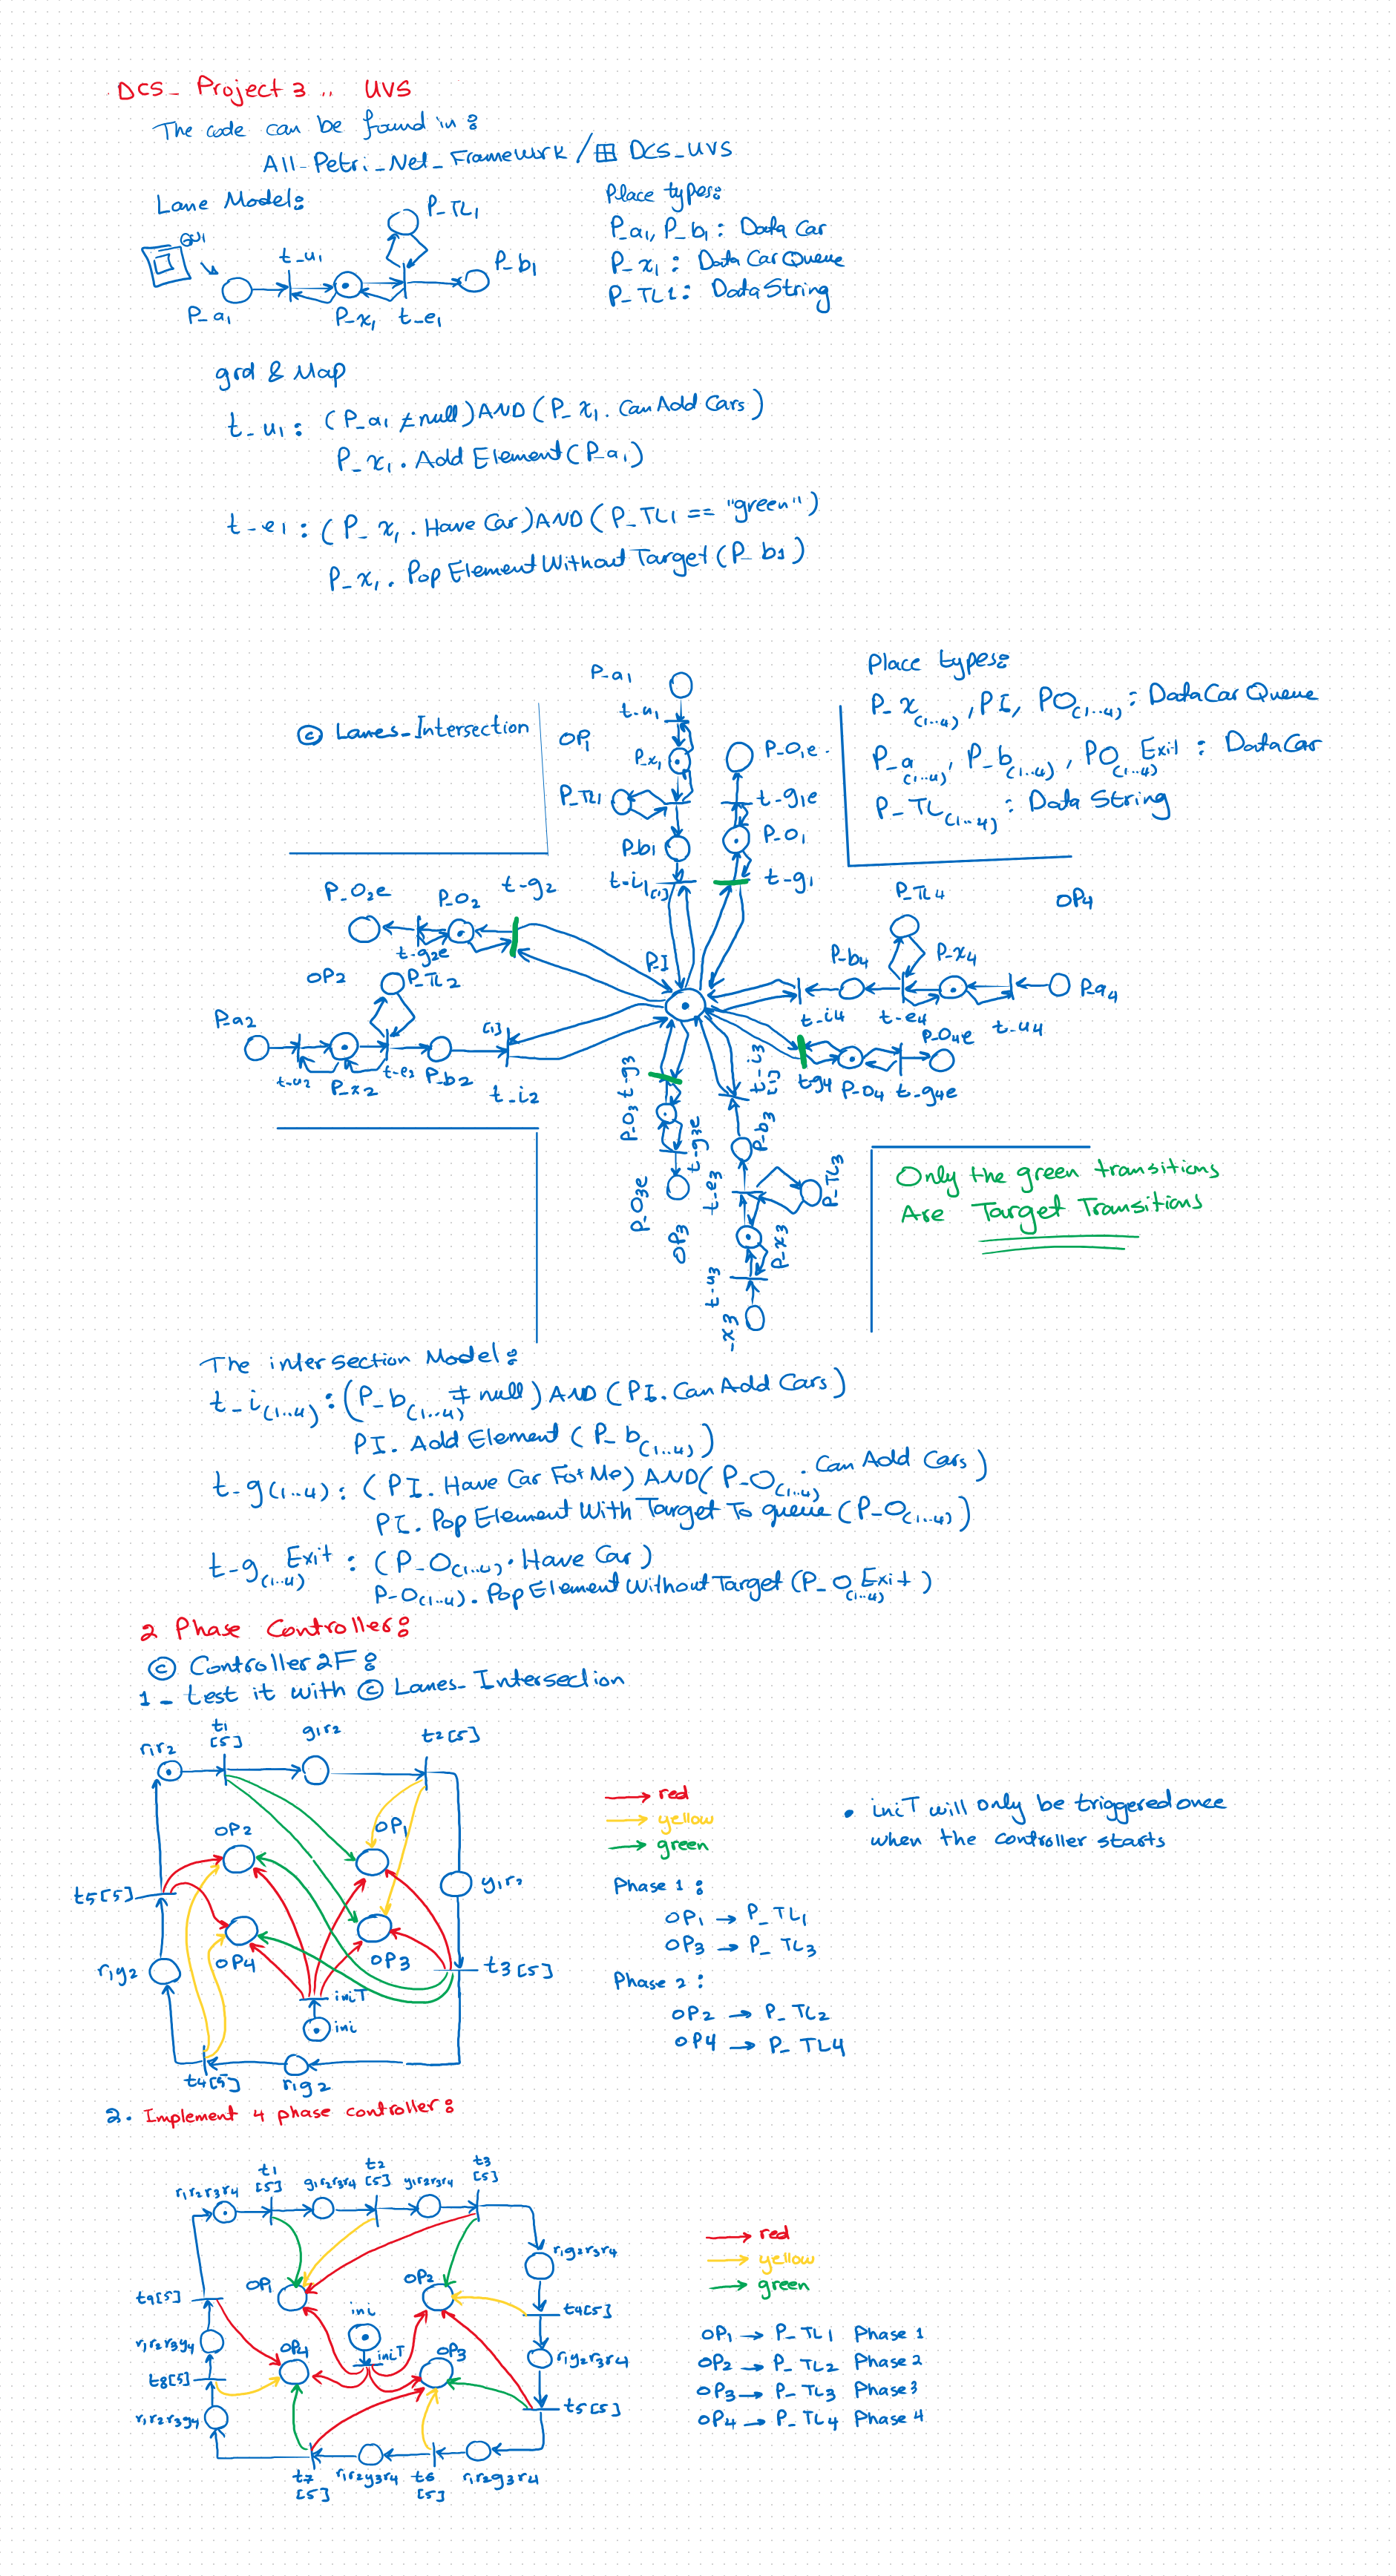 DCS_ Project 3 .. UVS
The code can be found in :
All_Petri_Net_Framework / DCS_UVS
Lane Model:
GUI
P_TL1
t_u1
P_b1
P_a1
P_x1
t_e1
Place types:
P_a1, P_b1 : DataCar
P_x1 : DataCarQueue
P_TL1 : DataString
grd & Map
t_u1 : (P_a1 ≠ null) AND (P_x1 . CanAddCars)
P_x1 . AddElement (P_a1)
t_e1 : (P_x1 . HaveCar) AND (P_TL1 == "green")
P_x1 . PopElementWithoutTarget (P_b1)
© Lanes_Intersection
Place types:
P_x(1..4) , PI, PO(1..4) : DataCarQueue
P_a(1..4) , P_b(1..4) , PO(1..4) Exit : DataCar
P_TL(1..4) : DataString
P_a1
t_u1
OP1
P_x1
P_TL1
P_b1
t_i1 [1]
P_O1e
t_g1e
P_O1
t_g1
P_O2e
P_O2
t_g2
t_g2e
OP2
P_TL2
P_a2
t_u2
P_x2
t_e2
P_b2
[1]
t_i2
P_I
P_TL4
OP4
P_b4
P_x4
P_a4
t_i4
t_e4
t_u4
P_O4e
t_g4
P_O4
t_g4e
t_g3
P_O3
t_g3e
P_O3e
OP3
t_i3
[1]
P_b3
t_e3
P_TL3
P_x3
t_u3
_x3
Only the green transitions
Are Target Transitions
The intersection Model:
t_i(1..4) : (P_b(1..4) ≠ null) AND (PI. CanAddCars)
PI. AddElement (P_b(1..4))
t_g(1..4) : (PI. HaveCarForMe) AND (P_O(1..4) . CanAddCars)
PI. PopElementWithTargetToqueue (P_O(1..4))
t_g(1..4) Exit : (P_O(1..4) . HaveCar)
P_O(1..4) . PopElementWithoutTarget (P_O(1..4) Exit)
2 Phase Controller:
© Controller2F :
1 - test it with © Lanes_Intersection
r1r2
t1 [5]
g1r2
t2 [5]
OP2
OP1
t5 [5]
y1r2
OP4
OP3
r1y2
t3 [5]
iniT
ini
t4 [5]
r1g2
red
yellow
green
Phase 1 :
OP1 → P_TL1
OP3 → P_TL3
Phase 2 :
OP2 → P_TL2
OP4 → P_TL4
• iniT will only be triggered once
when the controller starts
2. Implement 4 phase controller:
r1r2r3r4
t1 [5]
g1r2r3r4
t2 [5]
y1r2r3r4
t3 [5]
r1g2r3r4
OP1
OP2
t9 [5]
ini
t4 [5]
r1r2r3y4
OP4
iniT
OP3
r1y2r3r4
t8 [5]
t5 [5]
r1r2r3g4
t7 [5]
r1r2y3r4
t6 [5]
r1r2g3r4
red
yellow
green
OP1 → P_TL1 Phase 1
OP2 → P_TL2 Phase 2
OP3 → P_TL3 Phase 3
OP4 → P_TL4 Phase 4